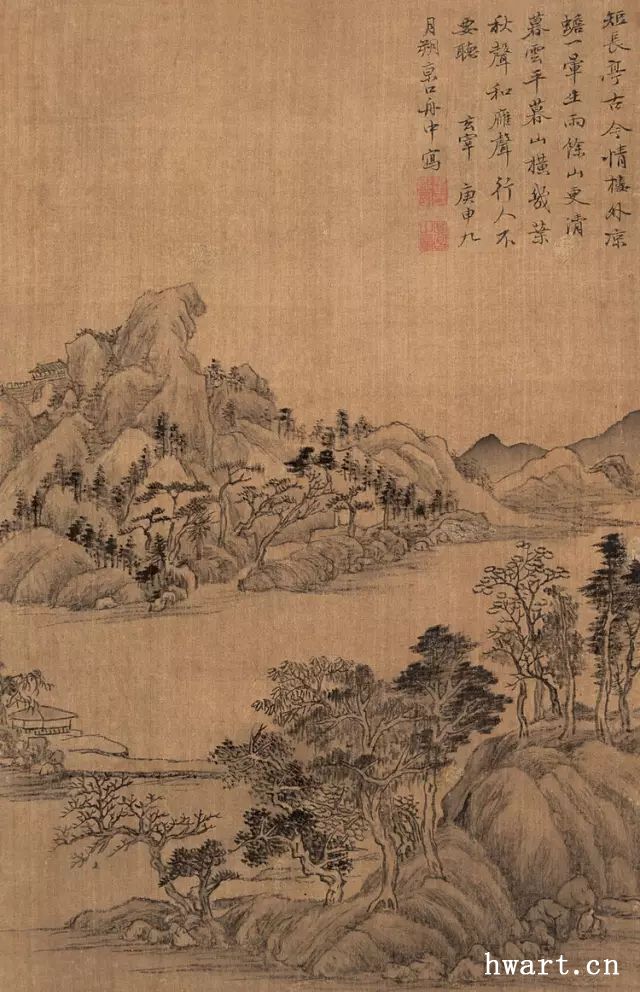 短長亭古今情樓外涼
蟾一暈生雨餘山更清
暮雲平暮山橫幾葉
秋聲和雁聲行人不
要聽 玄宰 庚申九
月朔京口舟中寫
hwart.cn